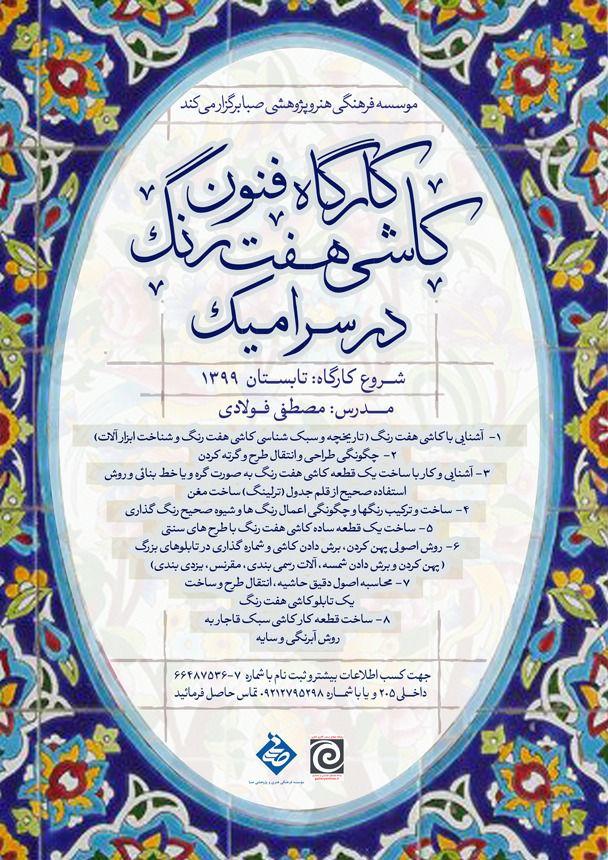 موسسه فرهنگی هنر و پژوهشی صبا برگزار می‌کند
کارگاه فنون
کاشی هفت رنگ
در سرامیک
شروع کارگاه: تابستان ۱۳۹۹
مدرس: مصطفی فولادی
۱- آشنایی با کاشی هفت رنگ (تاریخچه و سبک شناسی کاشی هفت رنگ و شناخت ابزار آلات)
۲- چگونگی طراحی و انتقال طرح و گرته کردن
۳- آشنایی و کار با ساخت یک قطعه کاشی هفت رنگ به صورت گره و یا خط بنائی و روش
استفاده صحیح از قلم جدول (ترلینگ) ساخت مغن
۴- ساخت و ترکیب رنگها و چگونگی اعمال رنگ ها و شیوه صحیح رنگ گذاری
۵- ساخت یک قطعه ساده کاشی هفت رنگ با طرح های سنتی
۶- روش اصولی پهن کردن، برش دادن کاشی و شماره گذاری در تابلوهای بزرگ
(پهن کردن و برش دادن شمسه، آلات رسمی بندی، مقرنس، یزدی بندی)
۷- محاسبه اصول دقیق حاشیه، انتقال طرح و ساخت
یک تابلو کاشی هفت رنگ
۸- ساخت قطعه کار کاشی سبک قاجار به
روش آبرنگی و سایه
جهت کسب اطلاعات بیشتر و ثبت نام با شماره ۷-۶۶۴۸۷۵۳۶
داخلی ۲۰۵ و یا با شماره ۰۹۲۱۲۷۹۵۲۹۸ تماس حاصل فرمائید
موسسه فرهنگی هنری و پژوهشی صبا